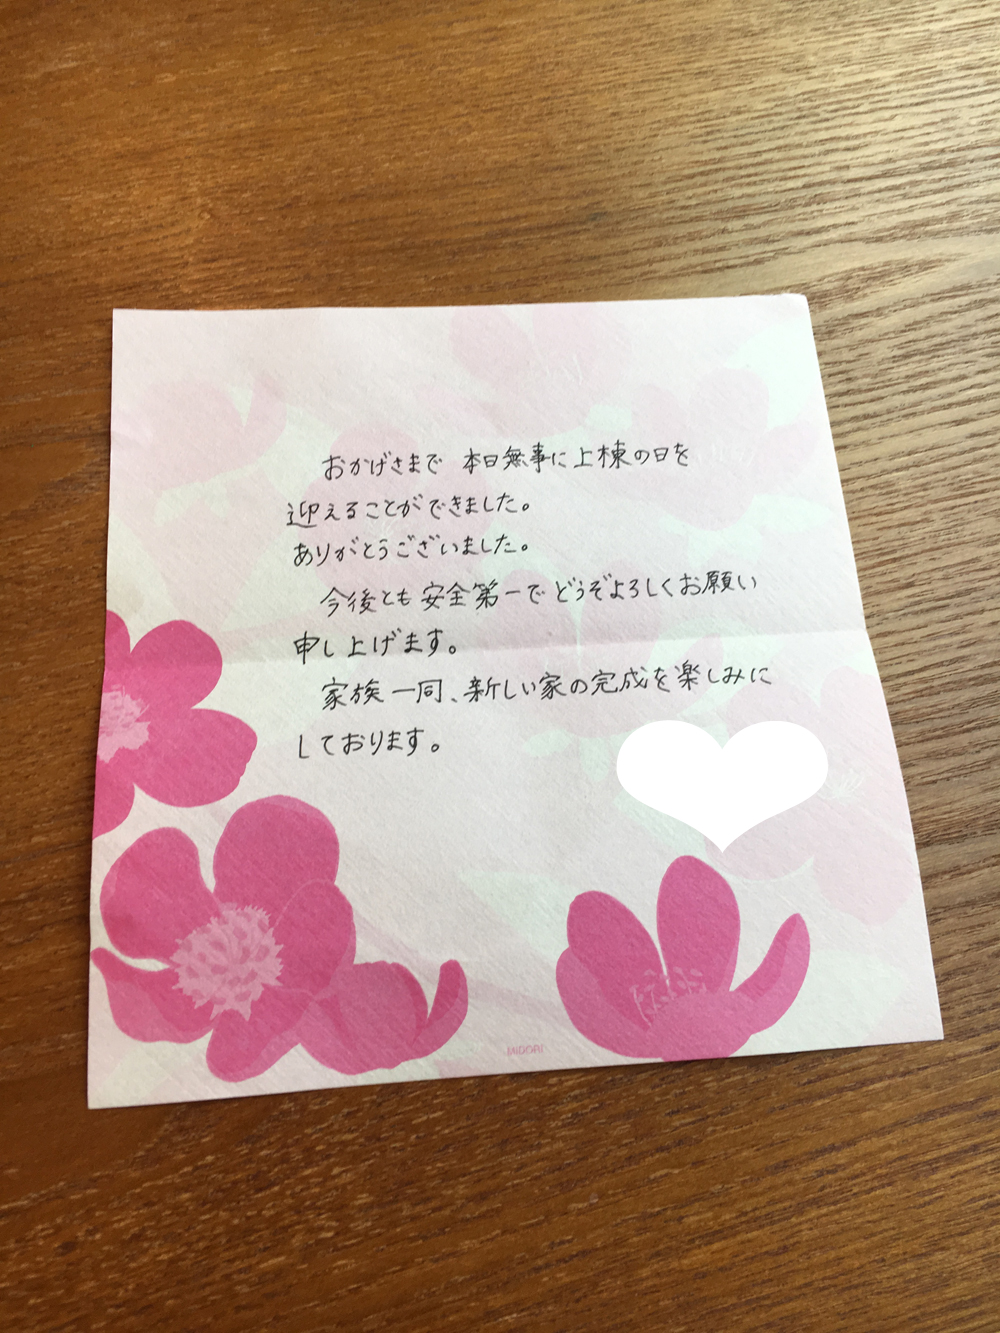 おかげさまで 本日無事に上棟の日を
迎えることができました。
ありがとうございました。
今後とも安全第一でどうぞよろしくお願い
申し上げます。
家族一同、新しい家の完成を楽しみに
しております。
MIDORI